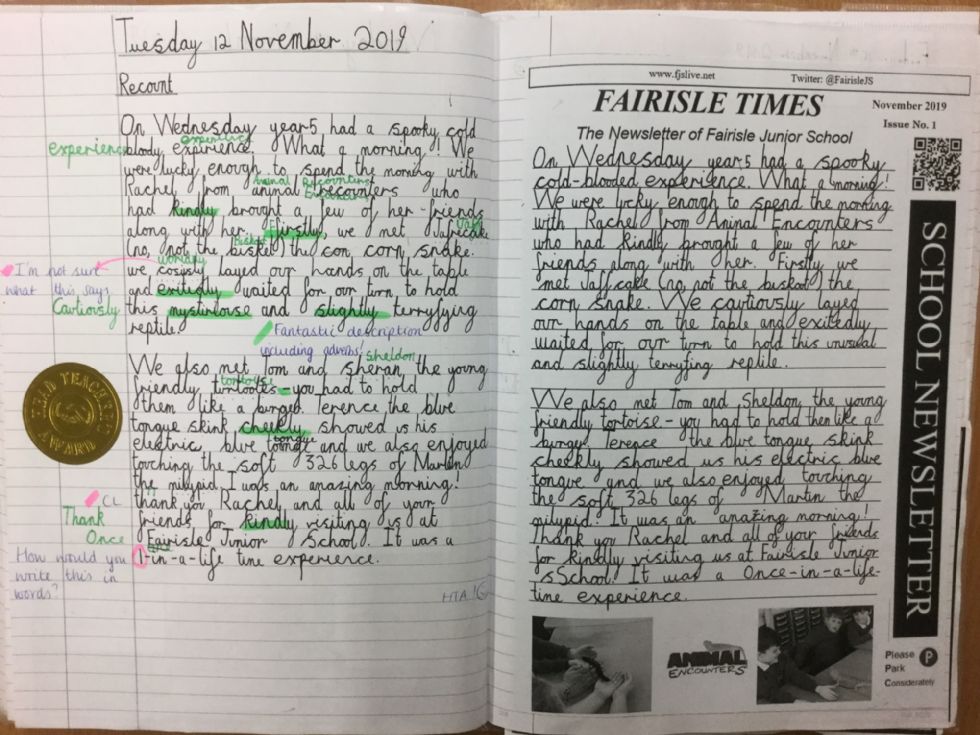 Tuesday 12 November 2019
Recount
On Wednesday year5 had a spooky cold
experience
experience
bloody expirence. What a morning! We
were lucky enough to spend the morning with
Animal Encounters
Rachel from animal who
had kindly brought a few of her friends
along with her. Firstly, we met Jafecake
Jaff
Biskot
(no, not the bisket) the con corn snake.
I'm not sure
what this says
we layed our hands on the table
and exitedly waited for our turn to hold
Cautiously
this mystirlouse and slightly terryfying
reptile.
Fantastic description
including adverbs!
Sheldon
We also met Tom and sheran, the young
tortoise
friendly - you had to hold
them like a burger. Terence the blue
LEAD TEACHER
AWARD
tongue skink cheekly showed us his
tongue
electric, blue and we also enjoyed
touching the soft 326 legs of Marten
the milypid. I was an amazing morning!
CL
thank you Rachel and all of your
Thank
friends for kindly visiting us at
Once
Fairisle Junior School. It was a
How would you
write this in
words?
1-in-a-life time experience.
HTA
www.fjslive.net
Twitter: @FairisleJS
FAIRISLE TIMES
November 2019
Issue No. 1
The Newsletter of Fairisle Junior School
On Wednesday year5 had a spooky
cold-blooded experience. What a morning!
We were lucky enough to spend the morning
with Rachel from Animal Encounters
who had kindly brought a few of her
friends along with her. Firstly we
met Jaffcake (no not the biskot) the
corn snake. We cautiously layed
our hands on the table and exitedly
waited for our turn to hold this unusual
and slightly terryfing reptile.
We also met Tom and Sheldon the young
friendly tortoise - you had to hold then like a
burger Terence the blue tongue skink
cheekly showed us his electric blue
tongue and we also enjoyed touching
the soft 326 legs of Martin the
milypid! It was an amazing morning!
Thank you Rachel and all of your friends
for kindly visiting us at Fairisle Junior
School! It was a Once-in-a-life-
time experience.
SCHOOL NEWSLETTER
ANIMAL
ENCOUNTERS
Please
Park
Considerately
P